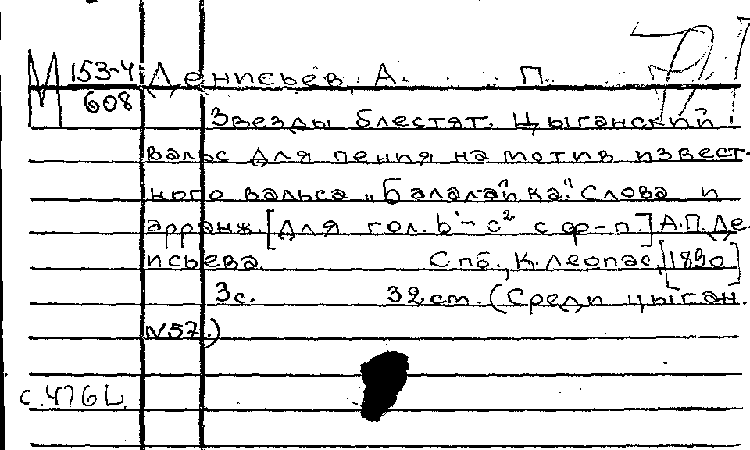 М 153-4 Денисьев, А. П.
608
Звезды блестят. Цыганский
вальс для пения на мотив извест-
ного вальса „Балалайка." Слова и
арранж. [Для гол. b'-c² с ф-п.] А.П. Де-
нисьева. Спб., К. Леопас, [1890]
3 с. 32 ст. (Среди цыган.
N57.)
с.476L